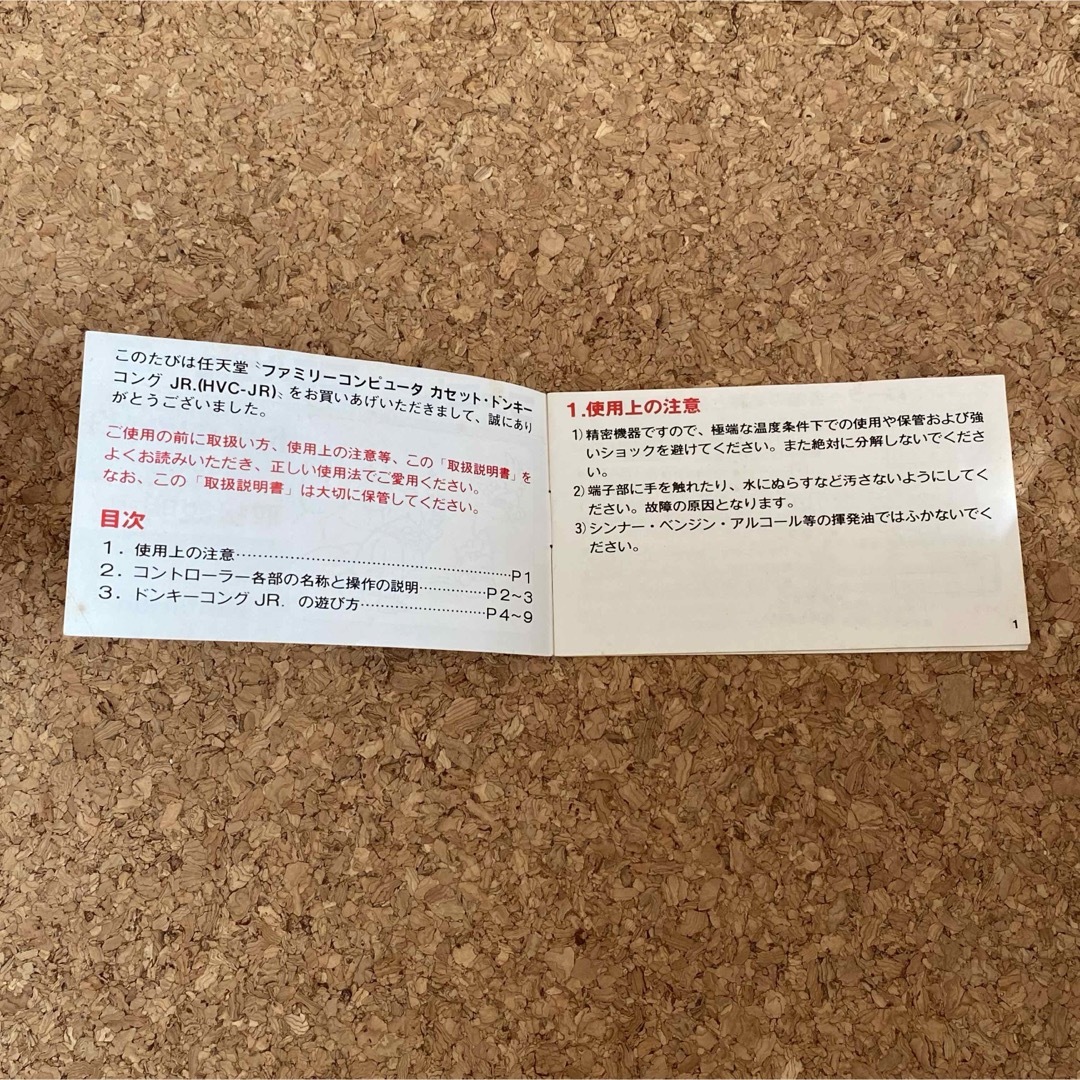 このたびは任天堂〝ファミリーコンピュータ カセット・ドンキー
コング JR.(HVC-JR)〟をお買いあげいただきまして、誠にあり
がとうございました。
ご使用の前に取扱い方、使用上の注意等、この「取扱説明書」を
よくお読みいただき、正しい使用法でご愛用ください。
なお、この「取扱説明書」は大切に保管してください。
目次
1. 使用上の注意……………………………………P1
2. コントローラー各部の名称と操作の説明……………P2~3
3. ドンキーコング JR. の遊び方………………………P4~9
1.使用上の注意
1)精密機器ですので、極端な温度条件下での使用や保管および強
いショックを避けてください。また絶対に分解しないでくださ
い。
2)端子部に手を触れたり、水にぬらすなど汚さないようにしてく
ださい。故障の原因となります。
3)シンナー・ベンジン・アルコール等の揮発油ではふかないでく
ださい。
1